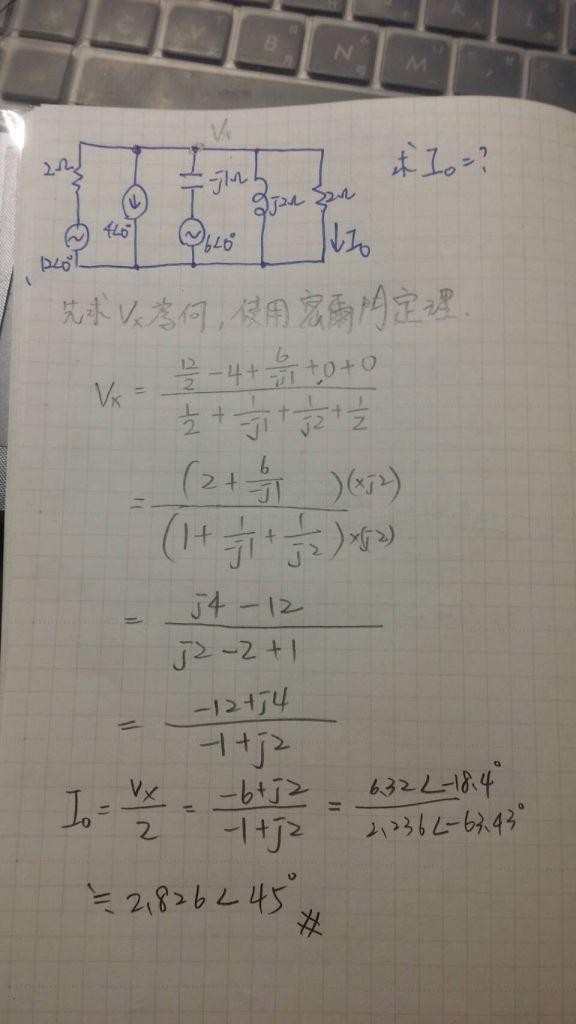 B
N
M
Vx
2Ω
-j1Ω
j2Ω
2Ω
求 I₀=?
12∠0°
4∠0°
6∠0°
↓I₀
先求 Vx 為何, 使用密爾門定理.
Vx = (12/2 - 4 + 6/-j1 + 0 + 0) / (1/2 + 1/-j1 + 1/j2 + 1/2)
= (2 + 6/-j1)(×j2) / (1 + 1/-j1 + 1/j2)×(j2)
= (j4 - 12) / (j2 - 2 + 1)
= (-12+j4) / (-1+j2)
I₀ = Vx/2 = (-6+j2) / (-1+j2) = 6.32∠-18.4° / 2.236∠-63.43°
≒ 2.826∠45° #